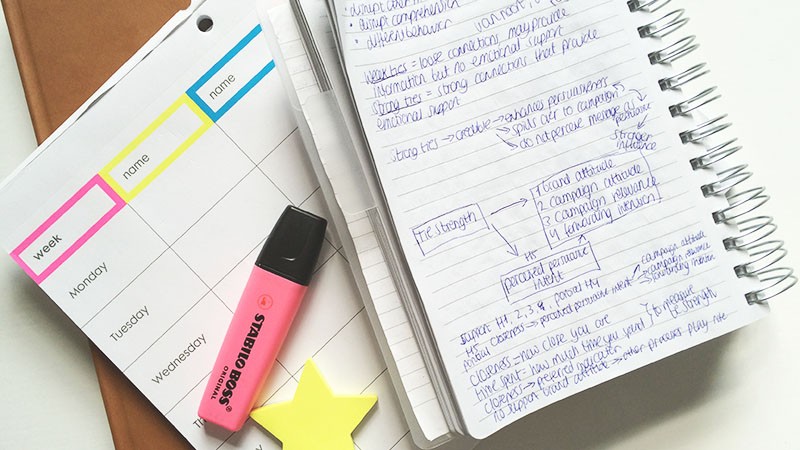 week
name
name
Monday
Tuesday
Wednesday
STABILO BOSS
ORIGINAL
disrupt comprehension
different behavior
weak ties = loose connections may provide
information but no emotional support
strong ties = strong connections that provide
emotional support
strong ties → credible → enhances persuasiveness
spills over to campaign
do not perceive message as
persuasive
stronger
influence
tie strength
1 brand attitude
2 campaign attitude
3 campaign relevance
4 forwarding intention
H5
perceived persuasive
intent
campaign attitude
campaign relevance
forwarding intention
support H1, 2, 3, 4 partial H4
H5
partial closeness → perceived persuasive intent
closeness = how close you are
time spent = how much time you spend
to measure
tie strength
closeness = preferred indicator
no support brand attitude → other processes play role